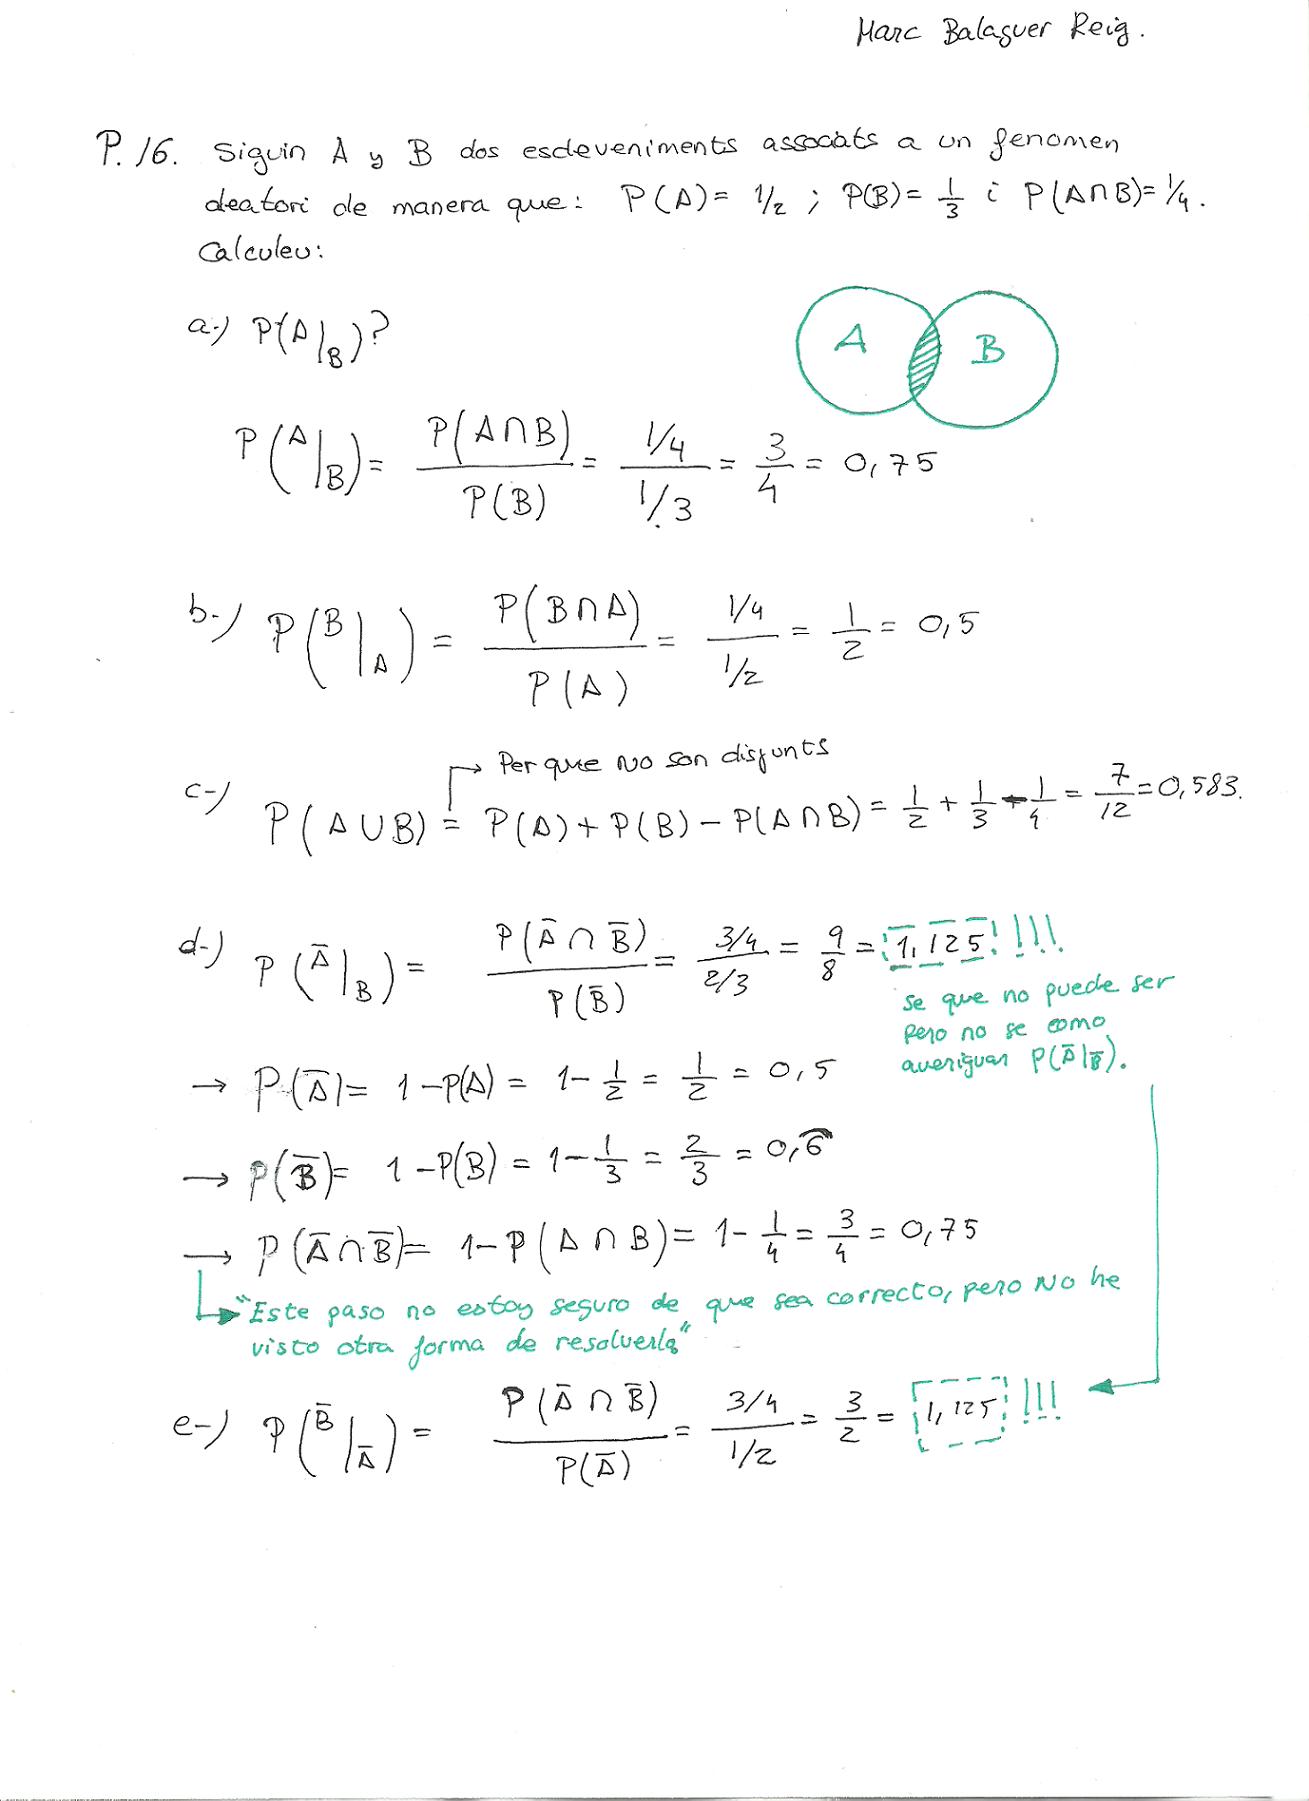 Marc Balaguer Reig.
P.16. Siguin A y B dos esdeveniments associats a un fenomen
aleatori de manera que: P(A)= 1/2 ; P(B)= 1/3 i P(A∩B)= 1/4.
Calculeu:
a-) P(A|B)?
A B
P(A|B)= P(A∩B)/P(B) = (1/4)/(1/3) = 3/4 = 0,75
b-) P(B|A) = P(B∩A)/P(A) = (1/4)/(1/2) = 1/2 = 0,5
Per que no son disjunts
c-) P(A∪B) = P(A)+P(B)-P(A∩B)= 1/2 + 1/3 - 1/4 = 7/12 = 0,583.
d-) P(Ā|B) = P(Ā∩B̄)/P(B̄) = (3/4)/(2/3) = 9/8 = 1,125 !!!!
se que no puede ser
pero no se como
averiguar P(Ā|B̄).
→ P(Ā)= 1-P(A) = 1- 1/2 = 1/2 = 0,5
→ P(B̄)= 1-P(B) = 1- 1/3 = 2/3 = 0,6̂
→ P(Ā∩B̄)= 1-P(A∩B)= 1- 1/4 = 3/4 = 0,75
"Este paso no estoy seguro de que sea correcto, pero NO he
visto otra forma de resolverlo"
e-) P(B̄|Ā) = P(Ā∩B̄)/P(Ā) = (3/4)/(1/2) = 3/2 = 1,125 !!!